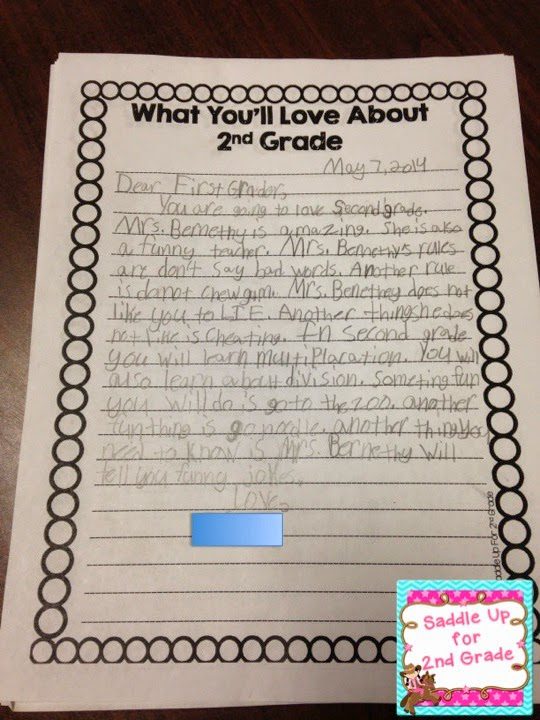 What You'll Love About
2nd Grade
May 7, 2014
Dear First Graders,
You are going to love Second grade.
Mrs. Bernethy is amazing. She is also
a funny teacher. Mrs. Bernethy's rules
are don't say bad words. Another rule
is do not chew gum. Mrs. Benethey does not
like you to LIE. Another thing she does
not like is cheating. In Second grade
you will learn multiplacation. You will
also learn about division. Someting fun
you will do is go to the zoo. another
fun thing is go noodle. another thing you
need to know is Mrs. Bernethy Will
tell you funny jokes.
Love,
Saddle Up For 2nd Grade
Saddle Up
for
2nd Grade